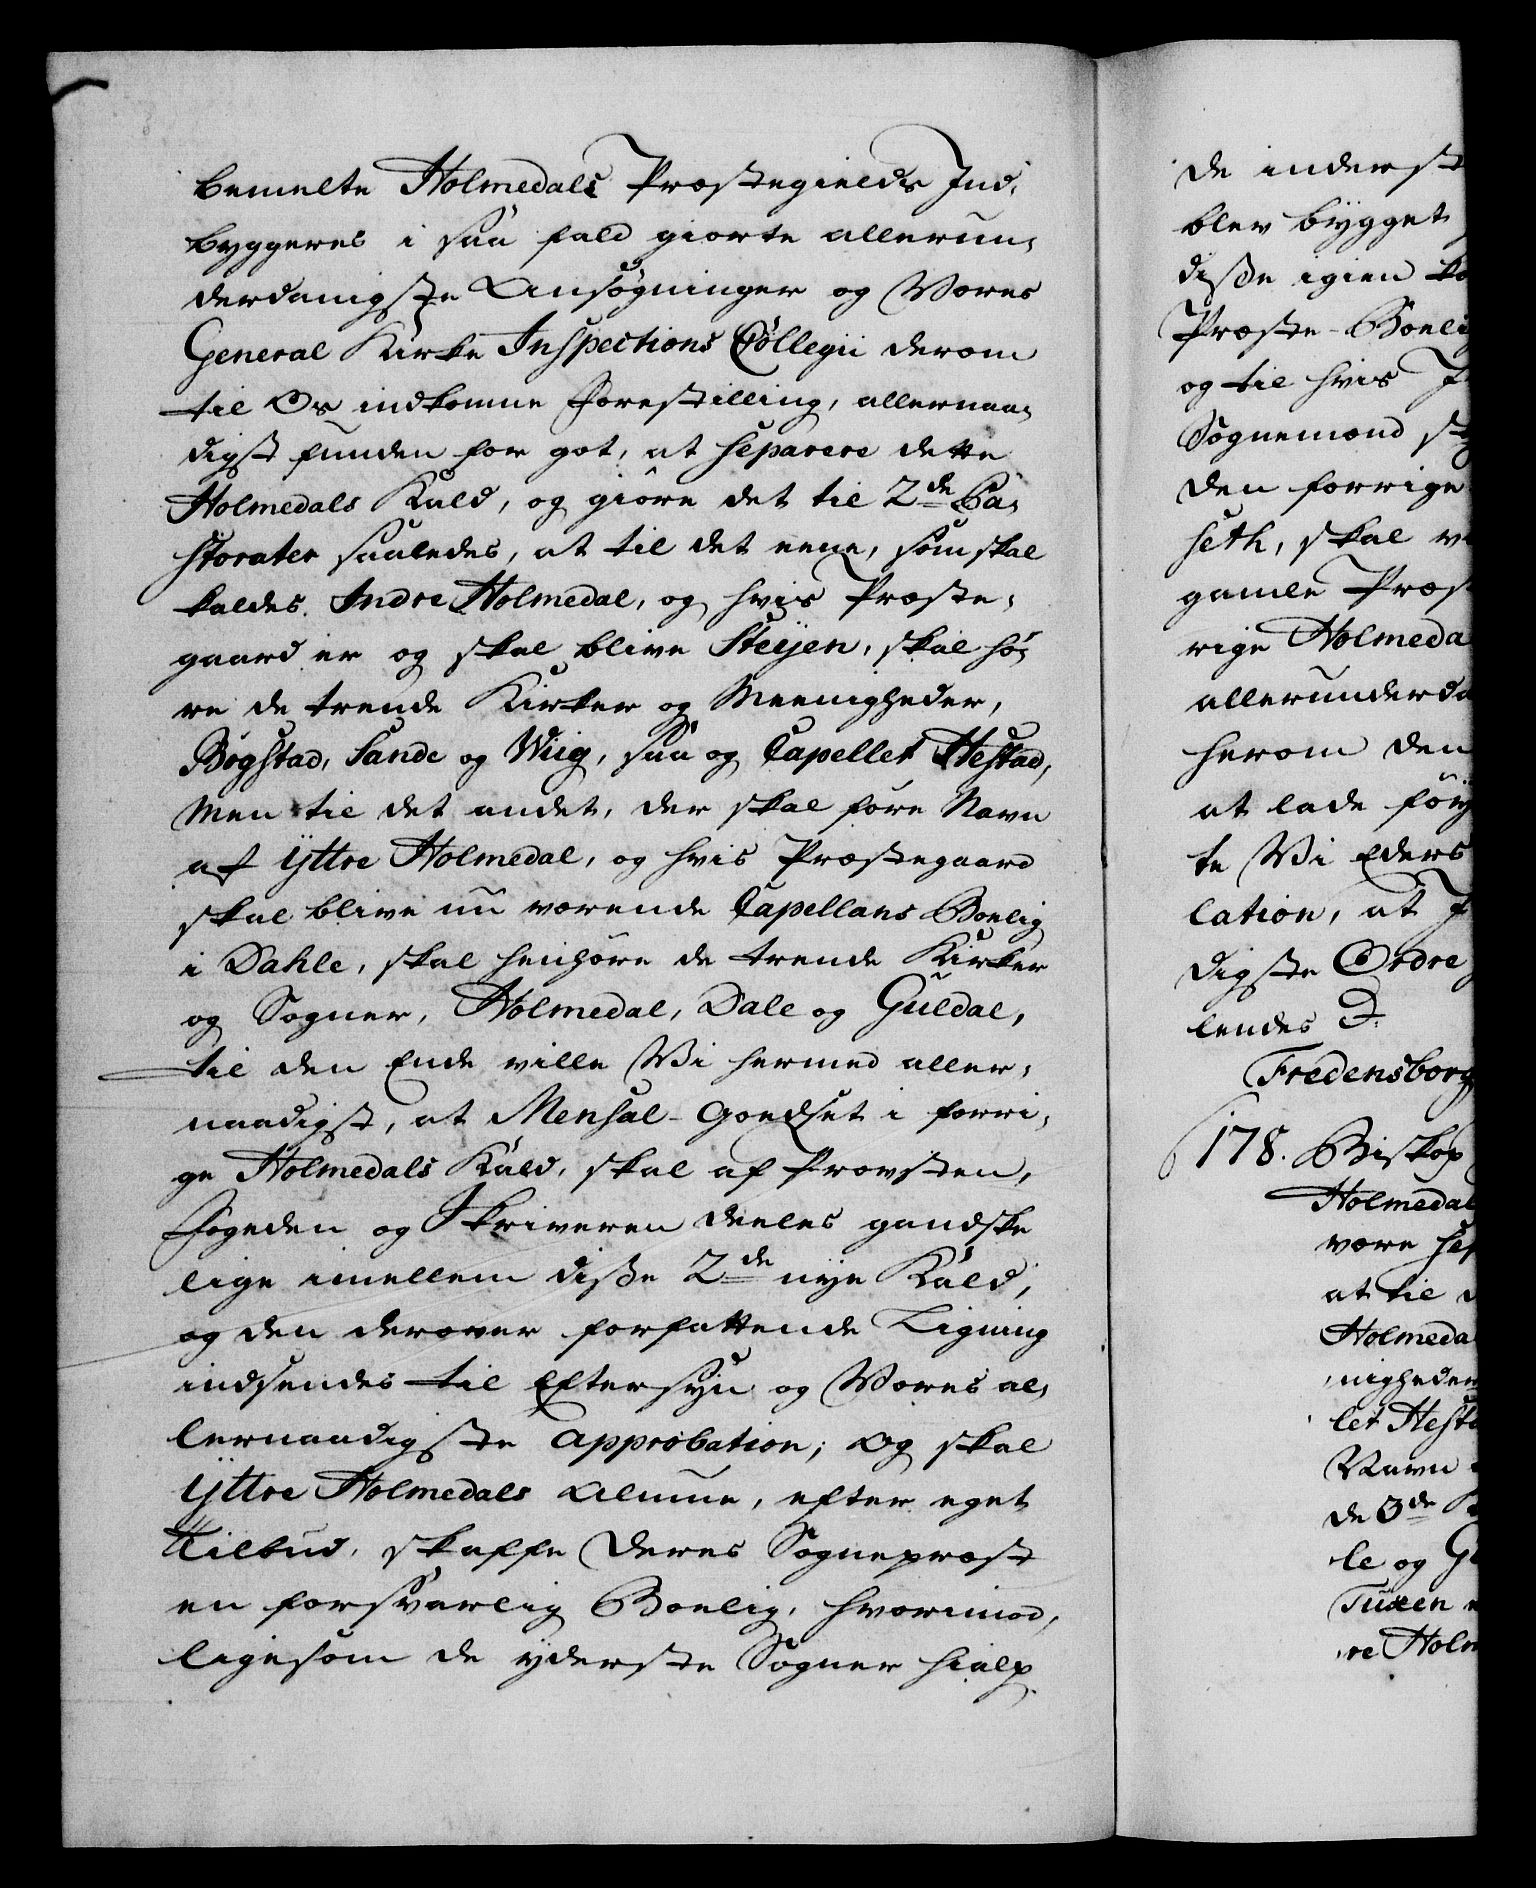 bemelte Holmedals Præstegields Ind,
byggeres i saa fald giorte allerun,
derdanigste Ansøgninger og Vores
General Kirke Inspections Collegii derom
til Os indkomne Forestilling, allernaa,
digst funden for got, at separere dette
Holmedals Kald, og giøre det til 2de Pa,
storater saaledes, at til det eene, som skal
kaldes Indre Holmedal, og hvis Præste,
gaard er og skal blive Steijen, skal hø,
re de trende Kirker og Meenigheder,
Bøgstad, Sande og Wiig, saa og Capellet Hestad,
Men til det andet, der skal føre Navn
af Ÿttre Holmedal, og hvis Præstegaard
skal blive nu værende Capellans Boelig
i Dahle, skal henhøre de trende Kirker
og Sogner, Holmedal, Dale og Guldal,
til den Ende ville Vi hermed aller,
naadigst, at Mensal-Goedset i forri,
ge Holmedals Kald, skal af Provsten,
Fogeden og Skriveren deeles gandske
lige imellem diße 2de nye Kald,
og den derover forfattende Ligning
indsendes til Eftersyn og Vores al,
lernaadigste Approbation; Og skal
Ÿttre Holmedals Almue, efter eget
Tilbud, skaffe Deres Sognepræst
en forsvarlig Boelig, hvorimod,
ligesom de yderste Sogner hialp
de inderst
blev bygget
diße igien
Præste-Boeli
og til hvis
Sognemænd
den forrige
seth, skal
gamle Præst
rige Holmeda
allerunderda
herom den
at lade
te Vi Eders
lation, at
digste Ordre
lendes D.
Fredensborg
178. Biskop
Holmedal
være sep
at til
Holmeda
nigheder
let Hesta
Navn
de 3de
le og Gu
Tuxen
re Holm